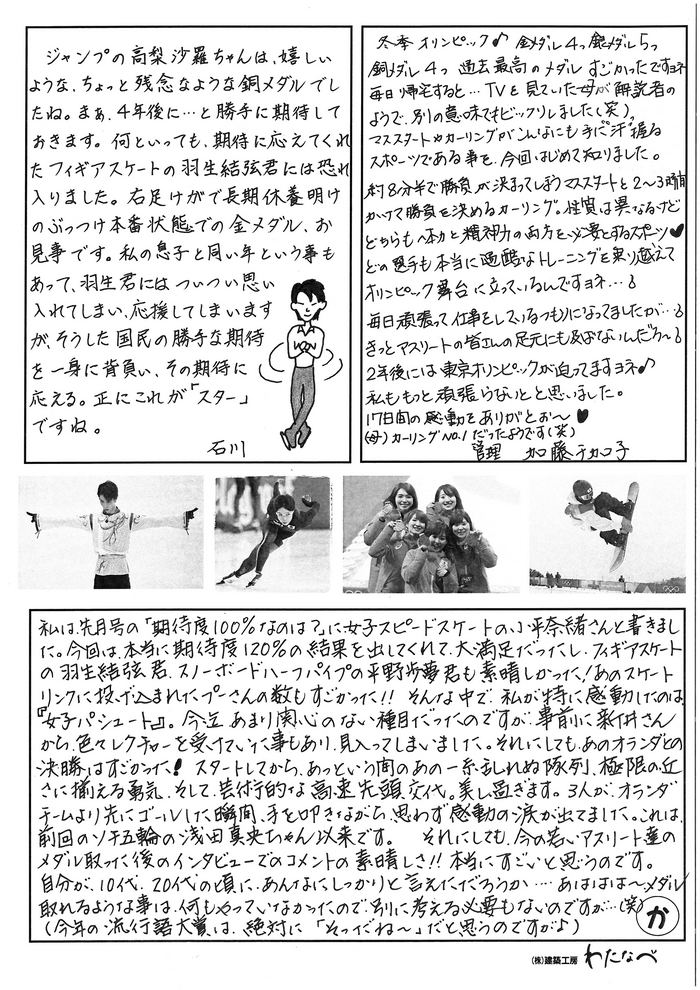 ジャンプの高梨沙羅ちゃんは、嬉しい
ような、ちょっと残念なような銅メダルでし
たね。まぁ、4年後に…と勝手に期待して
おきます。何といっても、期待に応えてくれ
たフィギアスケートの羽生結弦君には恐れ
入りました。右足けがで長期休養明け
のぶっつけ本番状態での金メダル、お
見事です。私の息子と同い年という事も
あって、羽生君には ついつい思い
入れてしまい、応援してしまいます
が、そうした国民の勝手な期待
を一身に背負い、その期待に
応える。正にこれが「スター」
ですね。
石川
冬季オリンピック♪ 金メダル4つ銀メダル5つ
銅メダル4つ 過去最高のメダル すごかったですヨネ
毎日帰宅すると…TVを見ていた母が解説者の
ようで、別の意味でもビックリしました(笑)
マススタートやカーリングがこんなにも手に汗握る
スポーツである事を、今回はじめて知りました。
約8分半で勝負が決まってしまうマススタートと2〜3時間
かけて勝負を決めるカーリング。性質は異なるけど
どちらも体力と精神力の両方を必要とするスポーツ♥
どの選手も本当に過酷なトレーニングを乗り越えて
オリンピック舞台に立っているんですヨネ…
毎日頑張って仕事をしているつもりになってましたが…
きっとアスリートの皆さんの足元にも及ばないんだろ〜
2年後には東京オリンピックが迫ってますヨネ♪
私ももっと頑張らないとと思いました。
17日間の感動をありがとお〜♥
(母)カーリングNO.1だったようです(笑)
管理 加藤チカコ
私は、先月号の「期待度100%なのは?」に女子スピードスケートの小平奈緒さんと書きまし
た。今回は、本当に期待度120%の結果を出してくれて、大満足だったし、フィギアスケート
の羽生結弦君、スノーボードハーフパイプの平野歩夢君も素晴しかった!あのスケート
リンクに投げ込まれたプーさんの数もすごかった!! そんな中で、私が特に感動したのは、
『女子パシュート』。今迄あまり関心のない種目だったのですが、事前に新井さん
から、色々レクチャーを受けていた事もあり、見入ってしまいました。それにしても、あのオランダとの
決勝はすごかった! スタートしてから、あっという間のあの一糸乱れぬ隊列、極限の近
さに揃える勇気、そして、芸術的な高速先頭交代。美し過ぎます。3人が、オランダ
チームより先にゴールした瞬間、手を叩きながら、思わず感動の涙が出てました。これは、
前回のソチ五輪の浅田真央ちゃん以来です。 それにしても、今の若いアスリート達の
メダル取った後のインタビューでのコメントの素晴しさ!!本当にすごいと思うのです。
自分が、10代、20代の頃に、あんなにしっかりと言えたでだろうか…. あははは〜メダル
取れるような事は、何もやっていなかったので、別に考える必要もないのですが…(笑)
(今年の流行語大賞は、絶対に「そっだね〜」だと思うのですが♪)
か
(株)建築工房 わたなべ